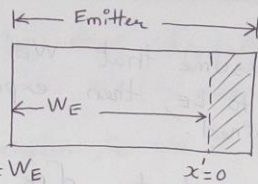 Emitter
W_E
= W_E
x'=0